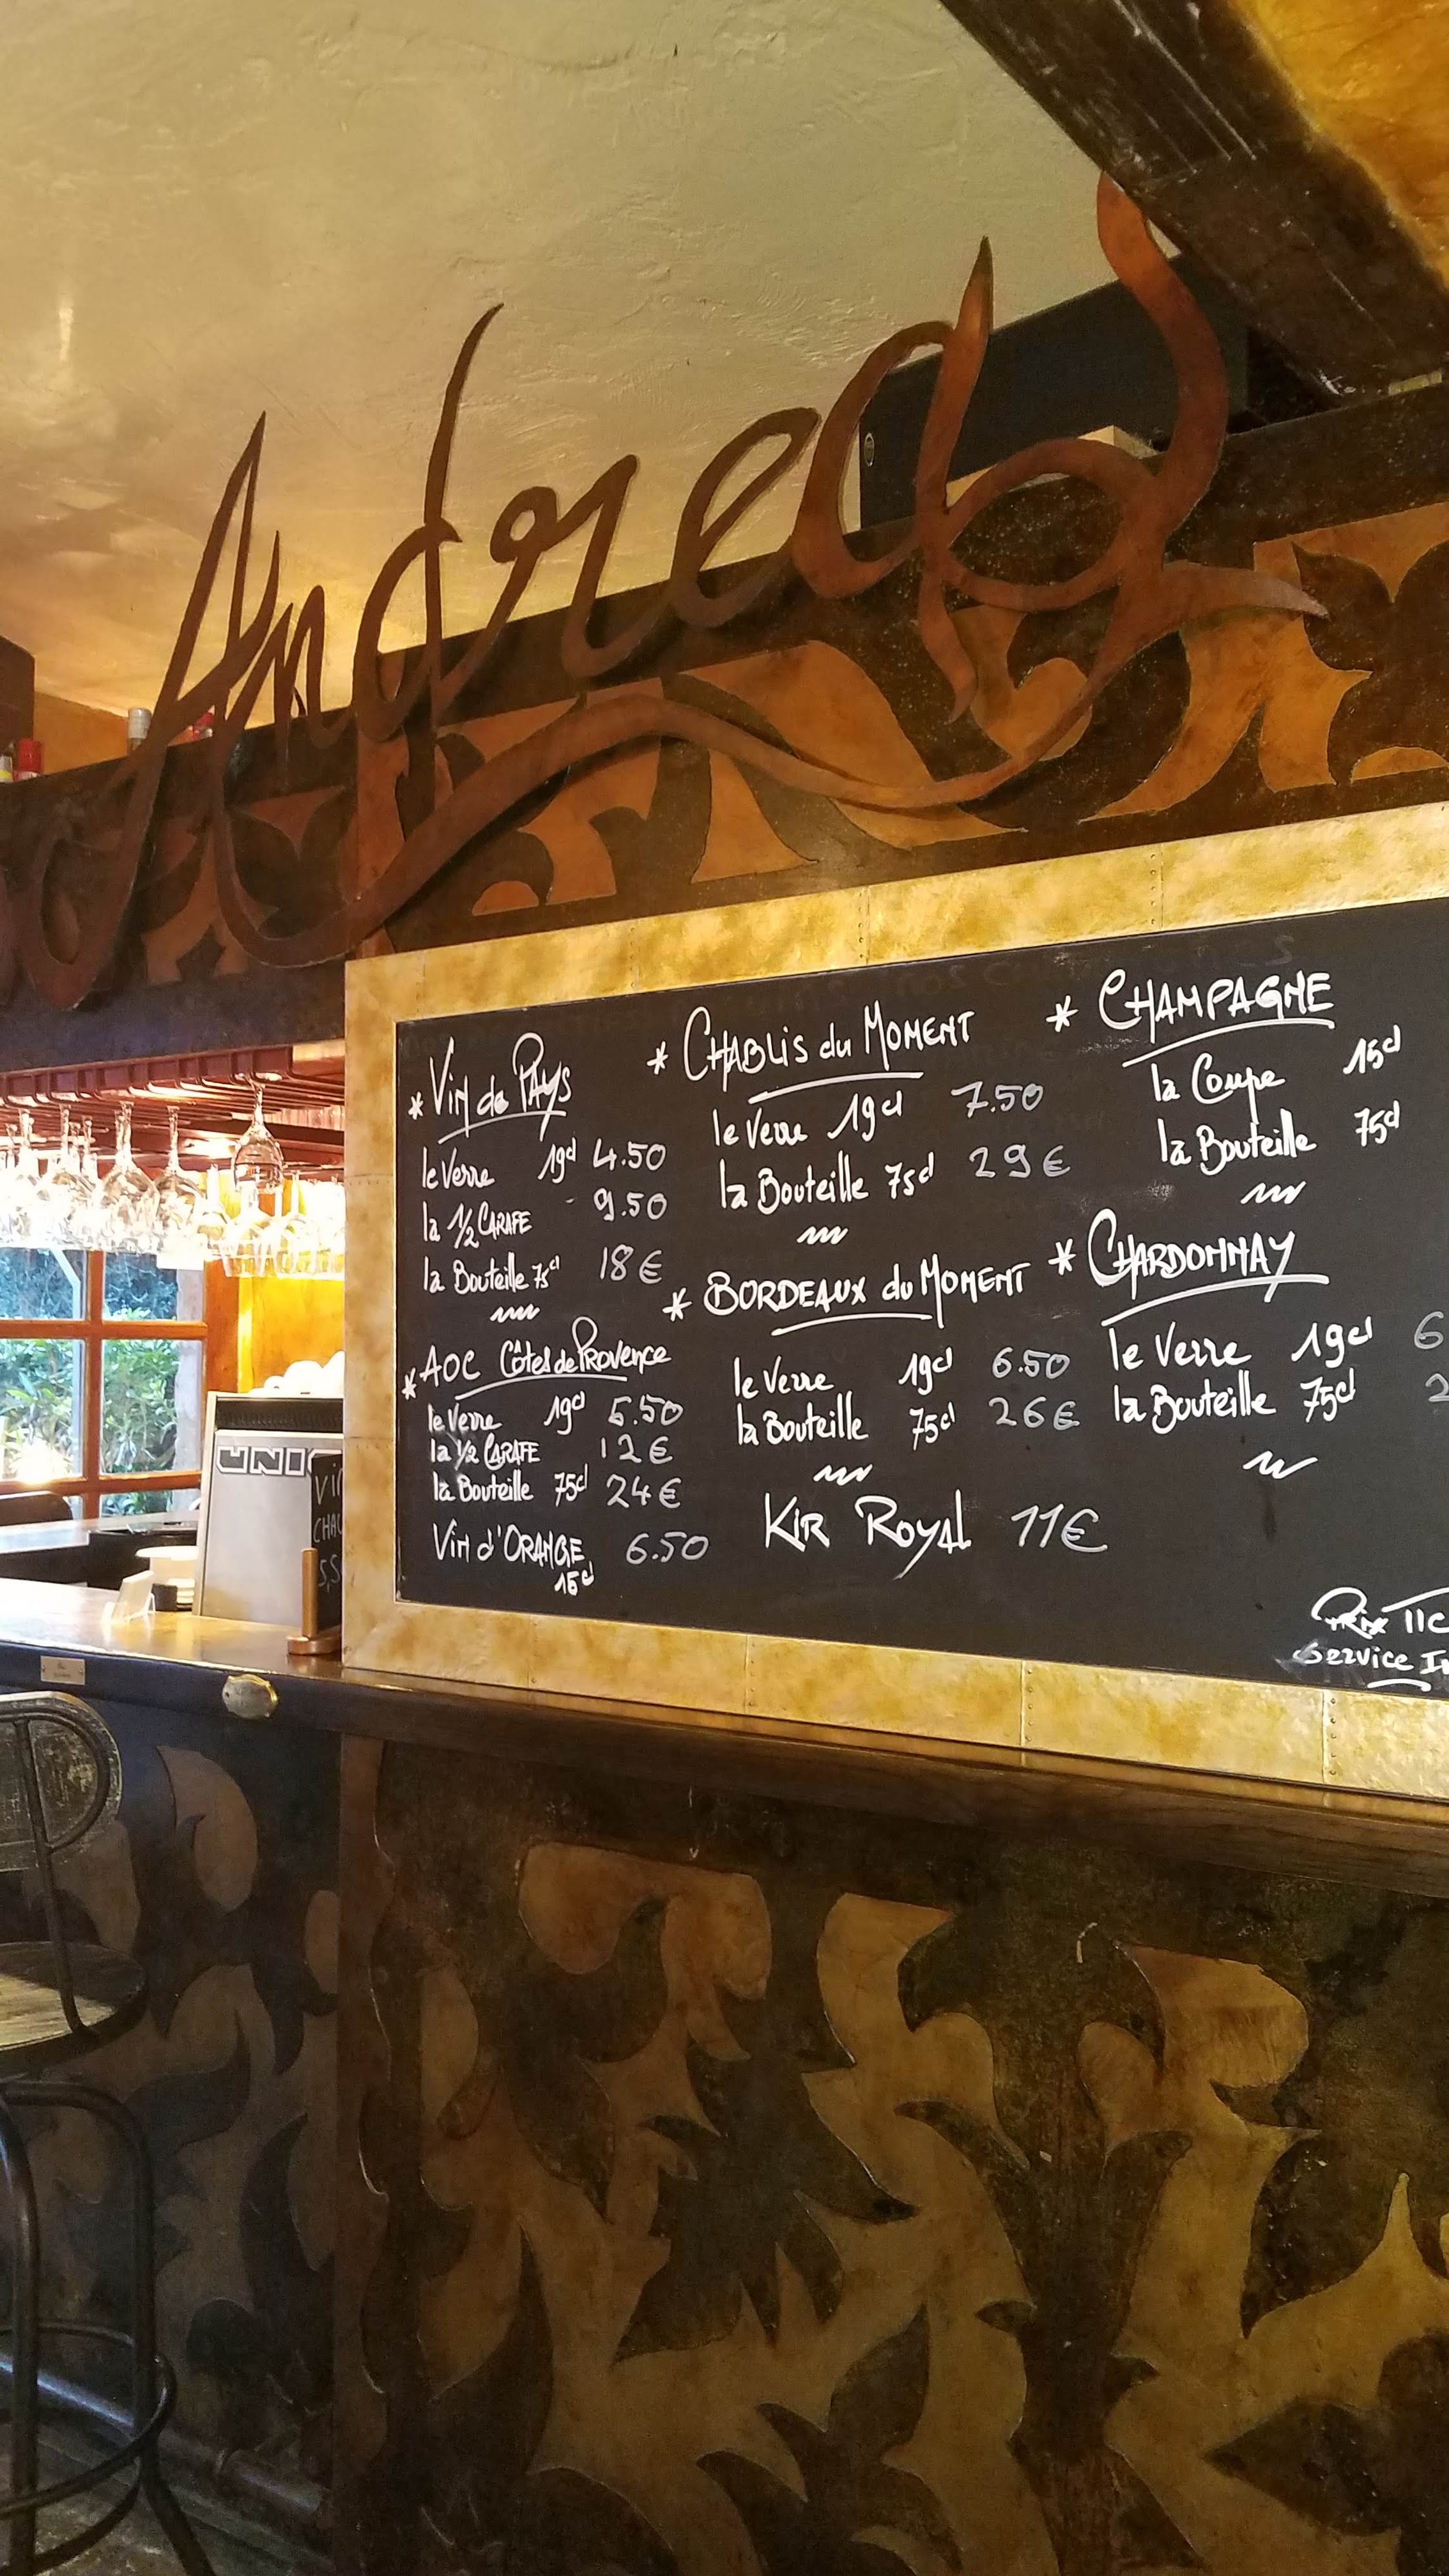 Andreas
* Vin de PAYS
le Verre 19cl 4.50
la 1/2 CARAFE - 9.50
la Bouteille 75cl 18€
* AOC Côtes de Provence
le Verre 19cl 5.50
la 1/2 CARAFE 12€
la Bouteille 75cl 24€
Vin d'ORANGE 6.50
15cl
* CHABLIS du MOMENT
le Verre 19cl 7.50
la Bouteille 75cl 29€
* BORDEAUX du MOMENT
le Verre 19cl 6.50
la Bouteille 75cl 26€
KIR ROYAL 11€
* CHAMPAGNE
la Coupe 15cl
la Bouteille 75cl
* CHARDONNAY
le Verre 19cl 6
la Bouteille 75cl 2
Prix TTC
Service In
UNIC
Vin
CHAU
5,5